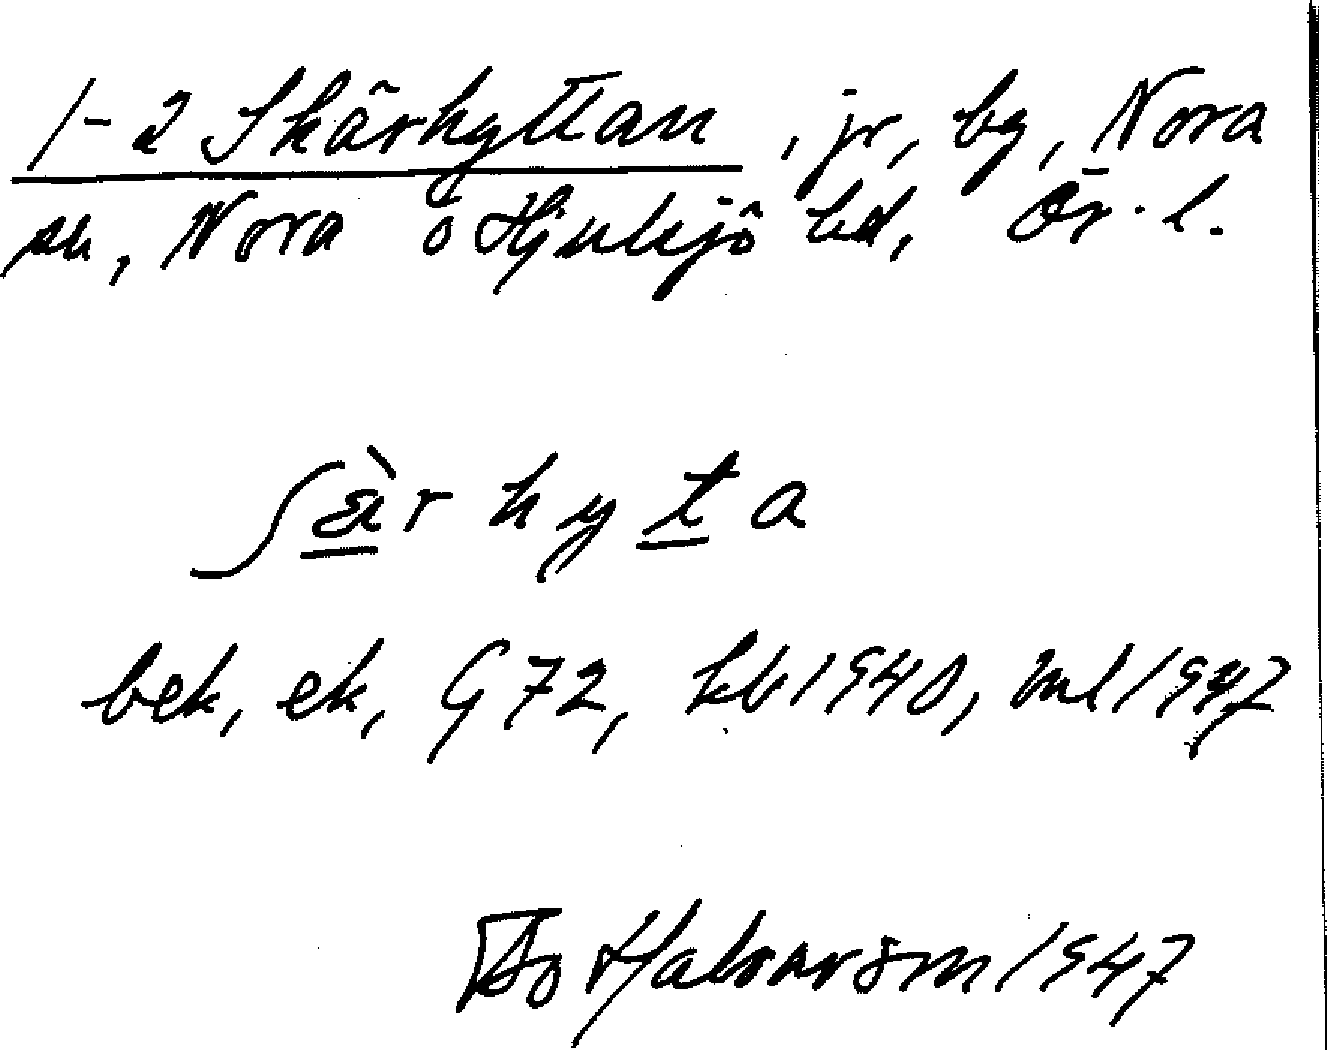 1-2 Skärhyttan, jr, by, Nora
sn, Nora o Hjulsjö bd, Ör. l.
ʃæ̀r hyta
bek, ek, G72, kb 1940, ml 1947
Bo 1947